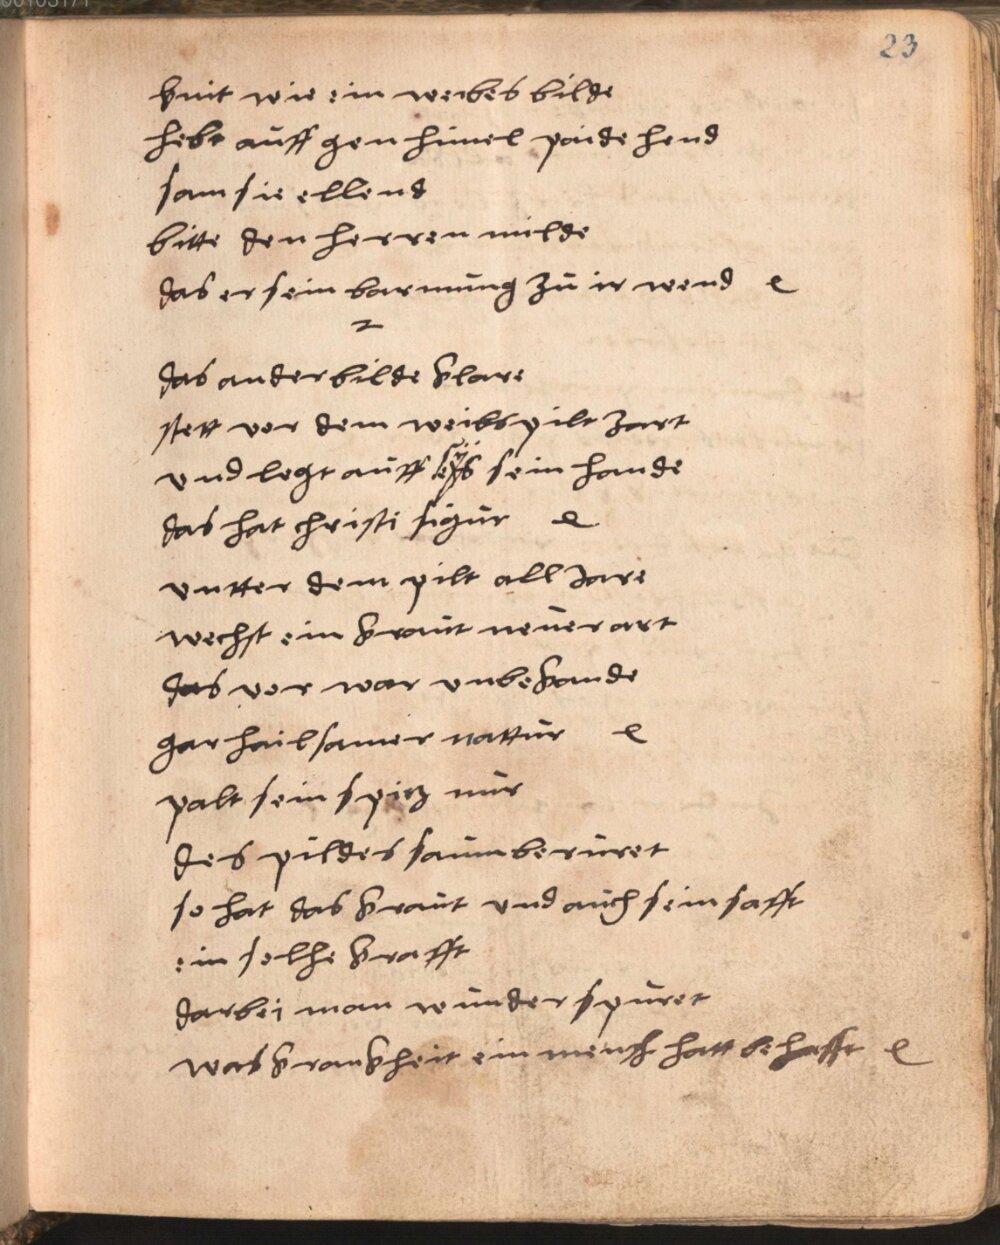 23
knit wie ein weibes bilde
hebt auff gen himel paide hend
sam sie ellend
bitte den herren milde
das er sein barmung zu ir wend
2
das ander bilde klare
stett vor dem weibspilt zart
vnd legt auff sein hande
das hat christi figur
vntter dem pilt all Jare
wechst ein kraut neuer art
das vor war vnbekande
gar hailsamer nattur
palt sein spicz nur
des pildes saum beruret
so hat das kraut vnd auch sein safft
ein solhe krafft
darbei man wunder spuret
was krankheit ein mensch hatt behafft